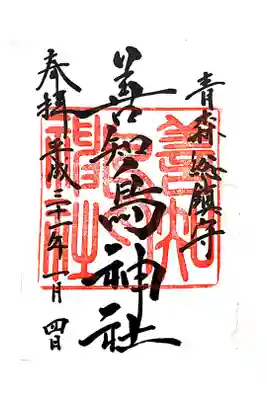 青森総鎮守
善知鳥神社
奉拝 平成三十一年一月四日